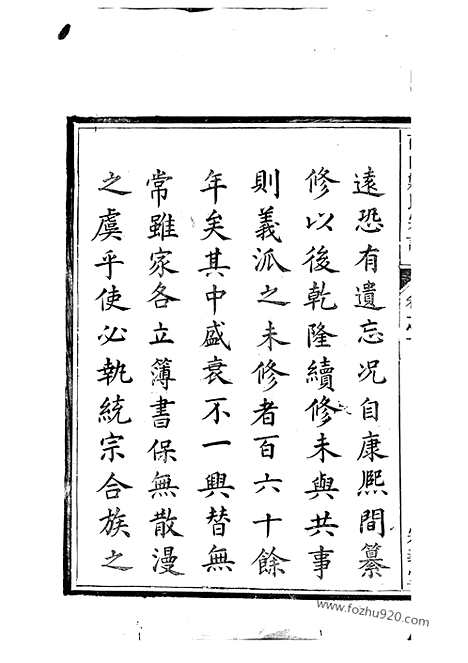 遠恐有遺忘况自康熙間纂
修以後乾隆續修未與共事
則義派之未修者百六十餘
年矣其中盛衰不一興替無
常雖家各立簿書保無散漫
之虞乎使必執統宗合族之
www.fozhu920.com